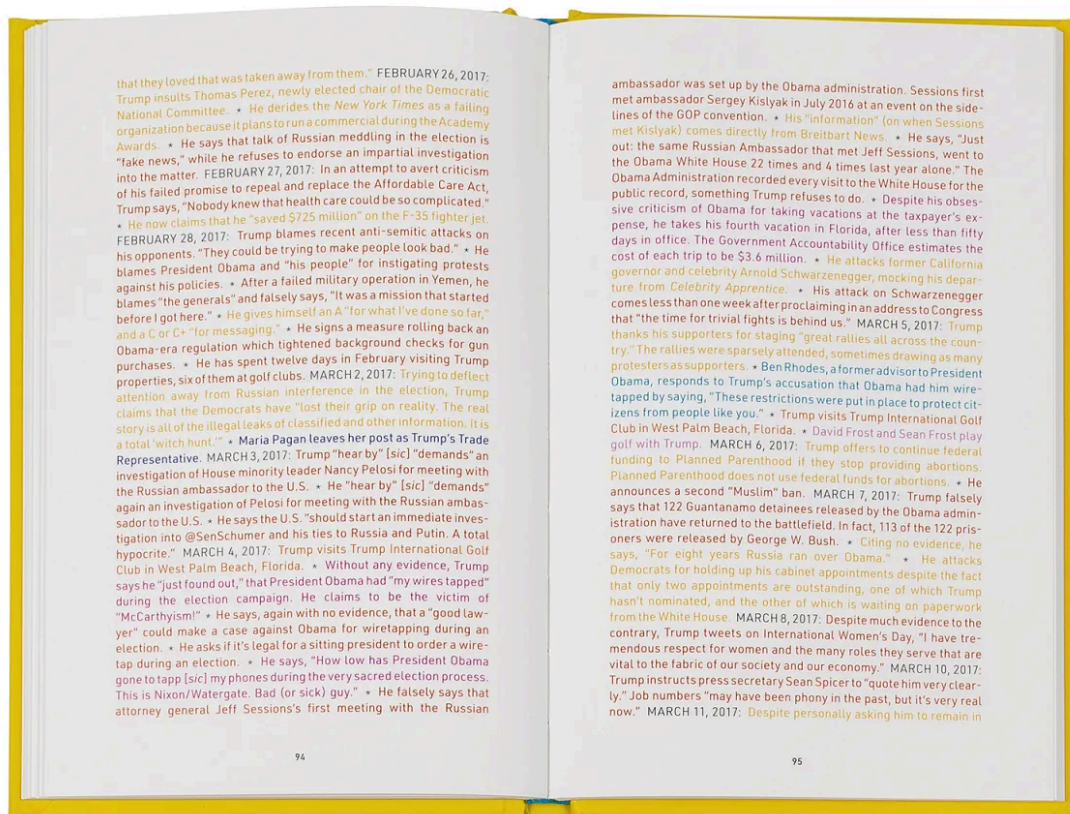 that they loved that was taken away from them.” FEBRUARY 26, 2017:
Trump insults Thomas Perez, newly elected chair of the Democratic
National Committee. ★ He derides the New York Times as a failing
organization because it plans to run a commercial during the Academy
Awards. ★ He says that talk of Russian meddling in the election is
“fake news,” while he refuses to endorse an impartial investigation
into the matter. FEBRUARY 27, 2017: In an attempt to avert criticism
of his failed promise to repeal and replace the Affordable Care Act,
Trump says, “Nobody knew that health care could be so complicated.”
★ He now claims that he “saved $725 million” on the F-35 fighter jet.
FEBRUARY 28, 2017: Trump blames recent anti-semitic attacks on
his opponents. “They could be trying to make people look bad.” ★ He
blames President Obama and “his people” for instigating protests
against his policies. ★ After a failed military operation in Yemen, he
blames “the generals” and falsely says, “It was a mission that started
before I got here.” ★ He gives himself an A “for what I’ve done so far,”
and a C or C+ “for messaging.” ★ He signs a measure rolling back an
Obama-era regulation which tightened background checks for gun
purchases. ★ He has spent twelve days in February visiting Trump
properties, six of them at golf clubs. MARCH 2, 2017: Trying to deflect
attention away from Russian interference in the election, Trump
claims that the Democrats have “lost their grip on reality. The real
story is all of the illegal leaks of classified and other information. It is
a total ‘witch hunt.’” ★ Maria Pagan leaves her post as Trump’s Trade
Representative. MARCH 3, 2017: Trump “hear by” [sic] “demands” an
investigation of House minority leader Nancy Pelosi for meeting with
the Russian ambassador to the U.S. ★ He “hear by” [sic] “demands”
again an investigation of Pelosi for meeting with the Russian ambas-
sador to the U.S. ★ He says the U.S. “should start an immediate inves-
tigation into @SenSchumer and his ties to Russia and Putin. A total
hypocrite.” MARCH 4, 2017: Trump visits Trump International Golf
Club in West Palm Beach, Florida. ★ Without any evidence, Trump
says he “just found out,” that President Obama had “my wires tapped”
during the election campaign. He claims to be the victim of
“McCarthyism!” ★ He says, again with no evidence, that a “good law-
yer” could make a case against Obama for wiretapping during an
election. ★ He asks if it’s legal for a sitting president to order a wire-
tap during an election. ★ He says, “How low has President Obama
gone to tapp [sic] my phones during the very sacred election process.
This is Nixon/Watergate. Bad (or sick) guy.” ★ He falsely says that
attorney general Jeff Sessions’s first meeting with the Russian
94
ambassador was set up by the Obama administration. Sessions first
met ambassador Sergey Kislyak in July 2016 at an event on the side-
lines of the GOP convention. ★ His “information” (on when Sessions
met Kislyak) comes directly from Breitbart News. ★ He says, “Just
out: the same Russian Ambassador that met Jeff Sessions, went to
the Obama White House 22 times and 4 times last year alone.” The
Obama Administration recorded every visit to the White House for the
public record, something Trump refuses to do. ★ Despite his obses-
sive criticism of Obama for taking vacations at the taxpayer’s ex-
pense, he takes his fourth vacation in Florida, after less than fifty
days in office. The Government Accountability Office estimates the
cost of each trip to be $3.6 million. ★ He attacks former California
governor and celebrity Arnold Schwarzenegger, mocking his depar-
ture from Celebrity Apprentice. ★ His attack on Schwarzenegger
comes less than one week after proclaiming in an address to Congress
that “the time for trivial fights is behind us.” MARCH 5, 2017: Trump
thanks his supporters for staging “great rallies all across the coun-
try.” The rallies were sparsely attended, sometimes drawing as many
protesters as supporters. ★ Ben Rhodes, a former advisor to President
Obama, responds to Trump’s accusation that Obama had him wire-
tapped by saying, “These restrictions were put in place to protect cit-
izens from people like you.” ★ Trump visits Trump International Golf
Club in West Palm Beach, Florida. ★ David Frost and Sean Frost play
golf with Trump. MARCH 6, 2017: Trump offers to continue federal
funding to Planned Parenthood if they stop providing abortions.
Planned Parenthood does not use federal funds for abortions. ★ He
announces a second “Muslim” ban. MARCH 7, 2017: Trump falsely
says that 122 Guantanamo detainees released by the Obama admin-
istration have returned to the battlefield. In fact, 113 of the 122 pris-
oners were released by George W. Bush. ★ Citing no evidence, he
says, “For eight years Russia ran over Obama.” ★ He attacks
Democrats for holding up his cabinet appointments despite the fact
that only two appointments are outstanding, one of which Trump
hasn’t nominated, and the other of which is waiting on paperwork
from the White House. MARCH 8, 2017: Despite much evidence to the
contrary, Trump tweets on International Women’s Day, “I have tre-
mendous respect for women and the many roles they serve that are
vital to the fabric of our society and our economy.” MARCH 10, 2017:
Trump instructs press secretary Sean Spicer to “quote him very clear-
ly.” Job numbers “may have been phony in the past, but it’s very real
now.” MARCH 11, 2017: Despite personally asking him to remain in
95